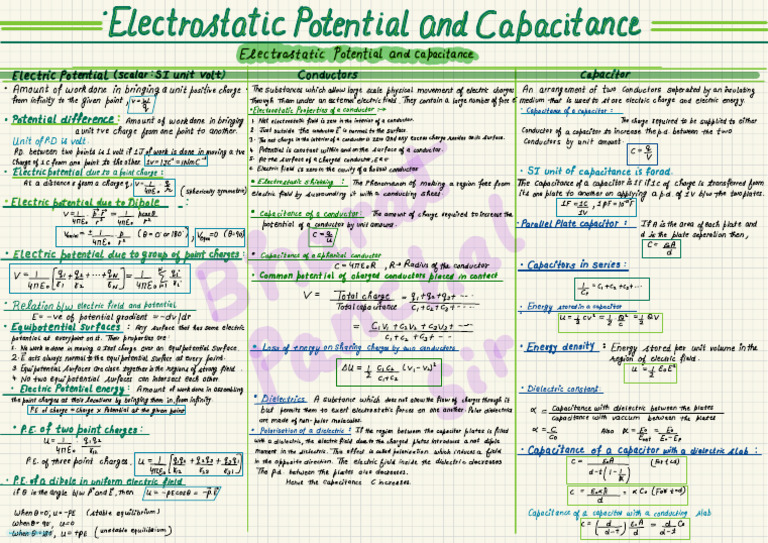 Electrostatic Potential and Capacitance
Electrostatic Potential and capacitance
Electric Potential (scalar: SI unit volt)
• Amount of work done in bringing a unit positive charge
from infinity to the given point, V = W/q
• Potential difference: Amount of work done in bringing
a unit +ve charge from one point to another.
Unit of P.D is volt.
P.D. between two points is 1 volt if 1J of work is done in moving a +ve
charge of 1C from one point to the other 1V = 1JC⁻¹ = 1NmC⁻¹
• Electric potential due to a point charge:
At a distance r from a charge q, V = 1/4πε₀ q/r (spherically symmetric)
• Electric potential due to Dipole :
• Electric potential due to group of point charges:
• Relation b/w electric field and potential
E = -ve of potential gradient = -dv/dr
• Equipotential surfaces: Any surface that has same electric
potential at every point on it. Their properties are:
1. No work is done in moving a test charge over an equipotential surface.
2. E acts always normal to the equipotential surface at every point.
3. Equipotential surfaces are close together in the regions of strong field.
4. No two equipotential surfaces can intersect each other.
• Electric Potential energy: Amount of work done in assembling
the point charges at their locations by bringing them in, from infinity
P.E of charge = charge × Potential at the given point
• P.E. of two point charges:
U = 1/4πε₀ q₁q₂/r₁₂
P.E. of three point charges:
• P.E. of a dipole in uniform electric field
If θ is the angle b/w P and E, then U = -PE cosθ = -P.E
When θ=0, U=-PE (stable equilibrium)
When θ=90, U=0
When U=+PE (unstable equilibrium)
Conductors
The substances which allow large scale physical movement of electric charges
through them under an external electric field. They contain a large number of free e
• Electrostatic Properties of a conductor :→
1. Net electrostatic field is zero in the interior of a conductor.
2. Just outside the conductor E is normal to the surface.
3. The net charge in the interior of a conductor is zero and any excess charge resides on its surface.
4. Potential is constant within and on the surface of a conductor.
5. At the surface of a charged conductor,
6. Electric field is zero in the cavity of a hollow conductor
• Electrostatic shielding : The Phenomenon of making a region free from
electric field by surrounding it with a conducting sheet
• Capacitance of a conductor: The amount of charge required to increase the
potential of a conductor by unit amount.
• Capacitance of a spherical conductor
C = 4πε₀R , R → Radius of the conductor
• Common potential of charged conductors placed in contact
V = Total charge / Total capacitance = q₁+q₂+q₃+--- / C₁+C₂+C₃+---
= C₁V₁ + C₂V₂ + C₃V₃ + --- / C₁+C₂+C₃+---
• Loss of energy on sharing charge by two conductors
ΔU = 1/2 C₁C₂/C₁+C₂ (V₁-V₂)²
• Dielectrics A substance which does not allow the flow of charge through it
but permits them to exert electrostatic forces on one another. Polar dielectrics
are made of non-polar molecules.
• Polarisation of a dielectric : If the region between the capacitor plates is filled
with a dielectric, the electric field due to the charged plates introduces a net dipole
moment in the dielectric. This effect is called polarisation which induces a field
in the opposite direction. The electric field inside the dielectric decreases
The p.d. between the plates also decreases.
Hence the capacitance C increases.
Capacitor
An arrangement of two conductors separated by an insulating
medium that is used to store electric charge and electric energy.
• Capacitance of a capacitor :
The charge required to be supplied to either
Conductor of a capacitor to increase the p.d. between the two
Conductors by unit amount.
C = q/V
• SI unit of capacitance is farad.
The Capacitance of a capacitor is 1F if 1C of charge is transferred from
its one plate to another on applying a p.d. of 1V b/w the two plates.
• Parallel Plate capacitor : If A is the area of each plate and
d is the plate seperation then,
C = ε₀A/d
• Capacitors in series :
1/Cs = 1/C₁ + 1/C₂ +---
• Energy stored in a capacitor
U = 1/2 CV² = 1/2 Q²/C = 1/2 QV
• Energy density : Energy stored per unit volume in the
region of electric field.
u = 1/2 ε₀E²
• Dielectric constant
= Capacitance with dielectric between the plates / Capacitance with vaccum between the plates
• Capacitance of a capacitor with a dielectric slab :
Capacitance of a capacitor with a conducting slab
C = (d/d-t) ε₀A/d = d/d-t C₀
Sir